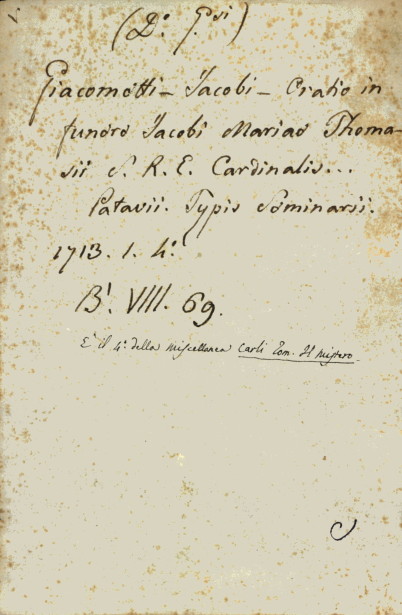 (Dº. Gsi)
Giacometti - Jacobi - Oratio in
funere Jacobi Mariae Thoma-
sii S. R. E. Cardinalis...
Patavii. Typis Seminarii.
1713. 1. 4º.
B¹. VIII. 69.
E' il 4º. della miscellanea Carli Tom.